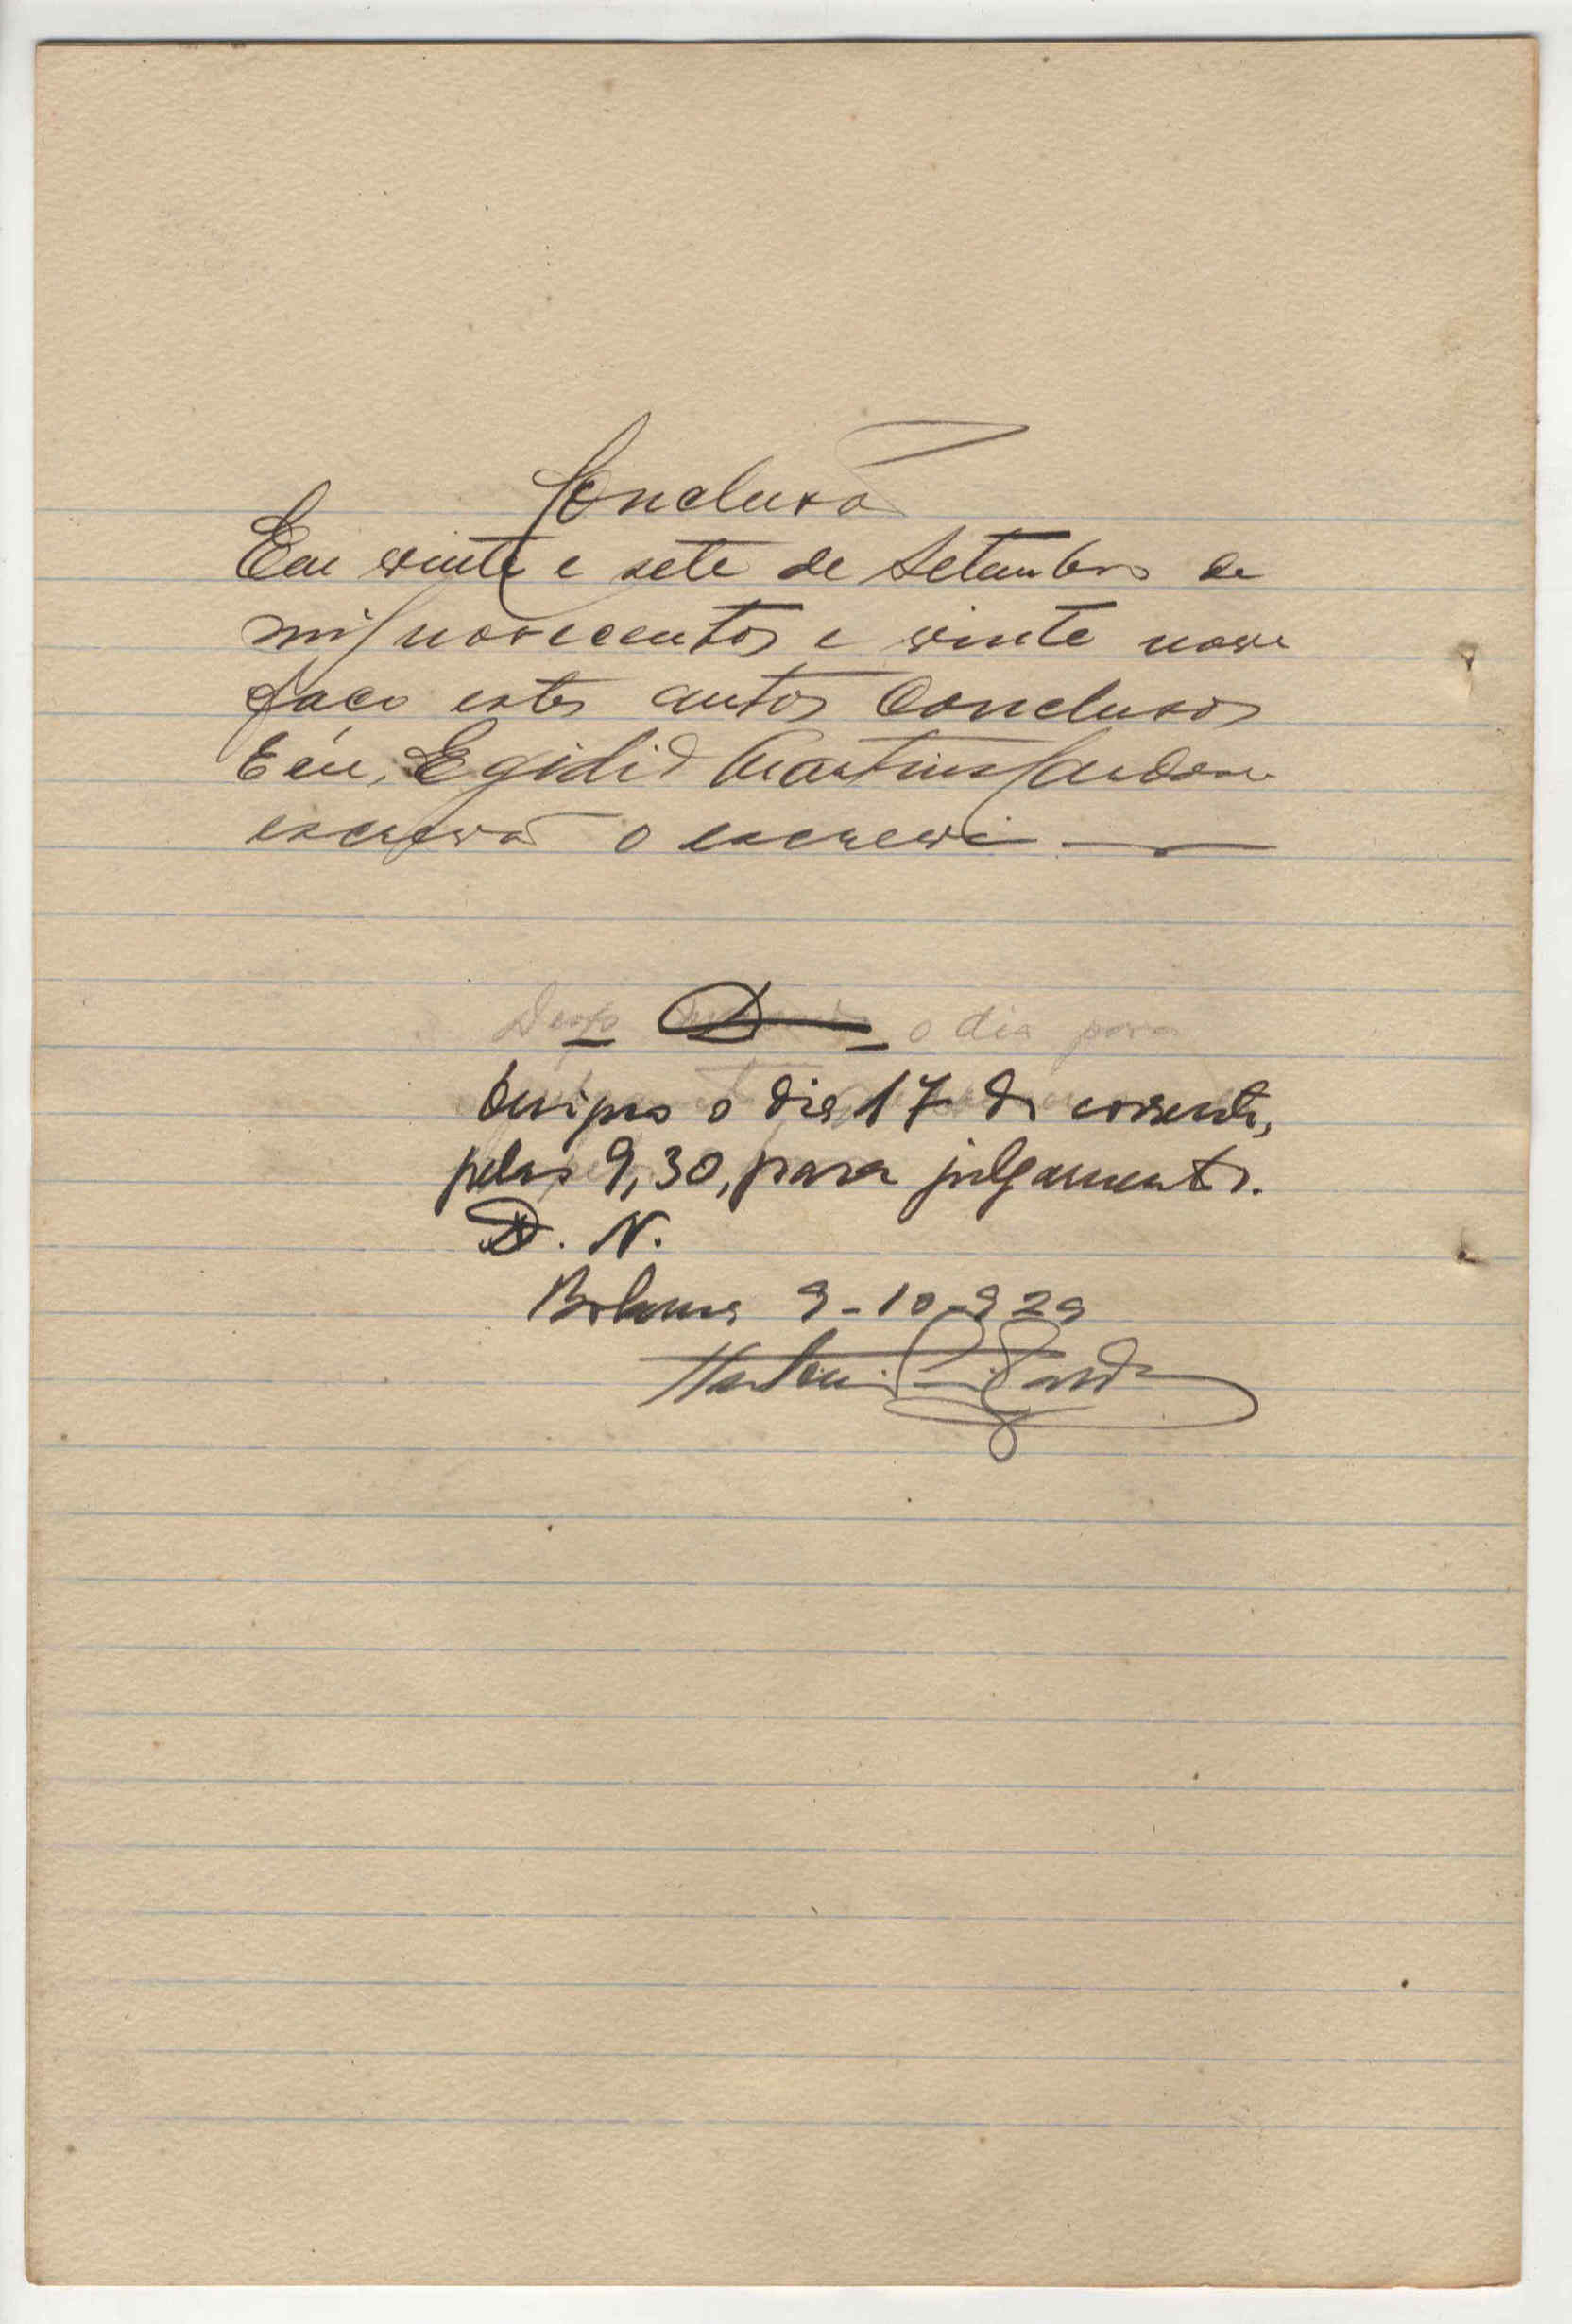 Conclusão
Em vinte e sete de Setembro de
mil novecentos e vinte nove
faço estes autos conclusos
E eu, Egidio Martins Cardoso
escrivão o escrevi
D
o dia para
Designo o dia 17 do corrente,
pelas 9,30, para julgamento.
D. N.
Bolama 9-10-929